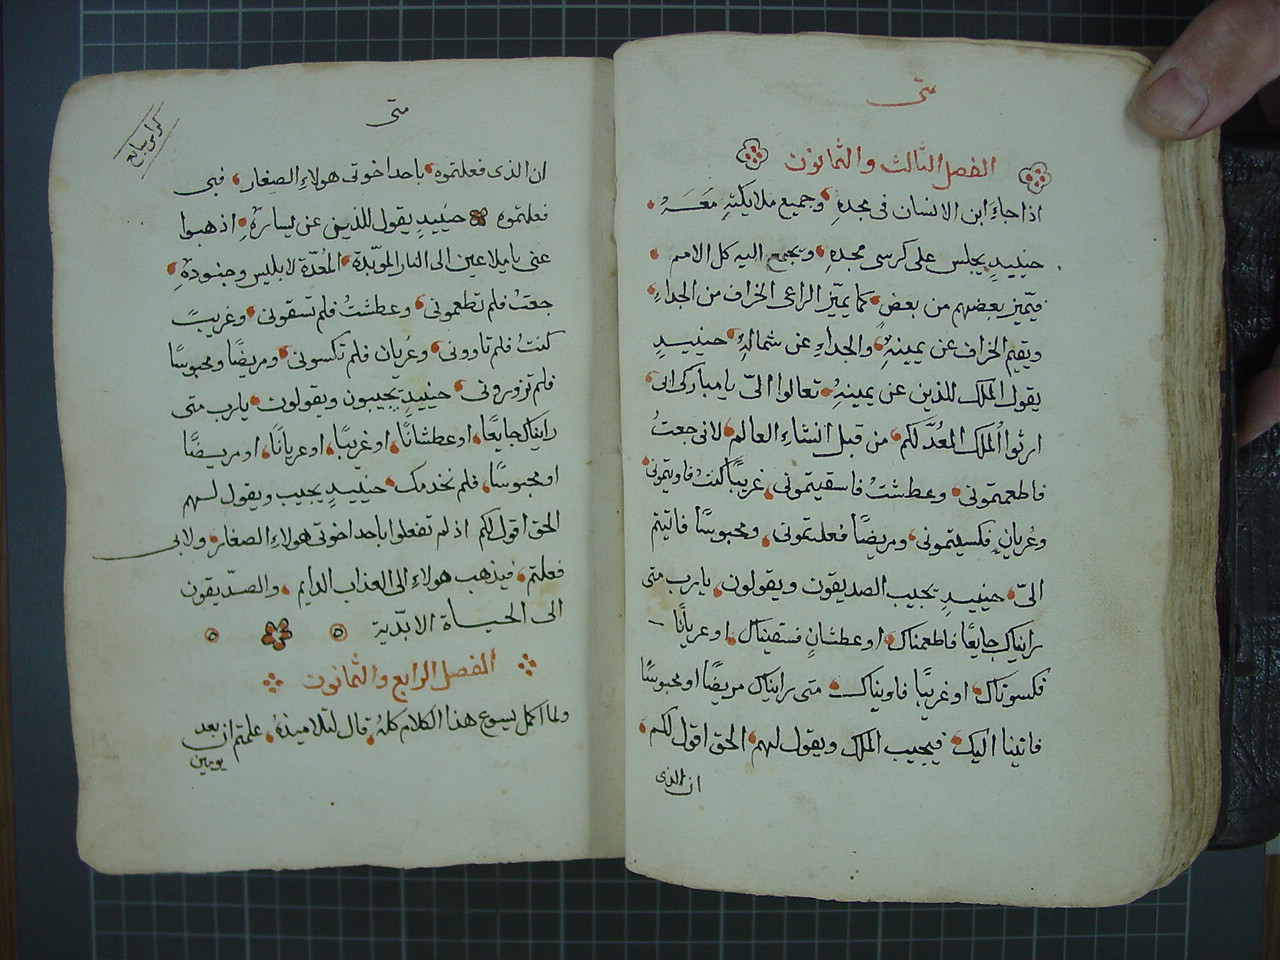 متى
الفصل الثالث والثمانون
اذا جاءَ ابن الانسان فى مجدهِ وجميع ملايكتهِ مَعَهُ
حينيدٍ يجلس على كرسى مجدهِ ويجمع اليه كل الامم
فيميّز بعضهم من بعض كما يميّز الراعى الخراف من الجداءِ
ويقيم الخراف عن يمينهِ والجداءِ عن شمالهِ حينيدٍ
يقول الملك للذين عن يمينهِ تعالوا الىّ يا مباركى ابى
ارثوا الملك المُعدَّ لكم من قبل انشاءِ العالم لانى جعتُ
فاطعمتمونى وعطشتُ فاسقيتمونى غريبًا كنتُ فاويتمونى
وعُريانٍ فكسيتمونى ومريضًا فعلتمونى ومحبوسًا فاتيتم
الىّ حينيدٍ يجيب الصديقون ويقولون يارب متى
رايناك جايعًا فاطعمناك او عطشانٍ فسقيناك او عريانًا
فكسوناك او غريبًا فاويناك متى رايناك مريضًا او محبوسًا
فاتينا اليك فيجيب الملك ويقول لهم الحق اقول لكم
ان الذى
متى
كراس سابع
ان الذى فعلتموه باحد اخوتى هولاءِ الصغار فبى
فعلتموه حينيدٍ يقول للذين عن يسارهِ اذهبوا
عنى يا ملاعين الى النار الموبّدة المُعدّة لابليس وجنودهِ
جعتُ فلم تطعمونى وعطشتُ فلم تسقونى وغريبًا
كنتُ فلم تاوونى وعُريان فلم تكسونى ومريضًا ومحبوسًا
فلم تزورونى حينيدٍ يجيبون ويقولون يارب متى
رايناك جايعًا او عطشانًا او غريبًا او عريانًا او مريضًا
او محبوسًا فلم نخدمك حينيدٍ يجيب ويقول لهم
الحق اقول لكم اذ لم تفعلوا باحد اخوتى هولاءِ الصغار ولا بى
فعلتم فيذهب هولاءِ الى العذاب الدايم والصدّيقون
الى الحياة الابديّة
الفصل الرابع والثمانون
ولما اكمل يسوع هذا الكلام كلهُ قال لتلاميذهُ علمتم ان بعد
يومين